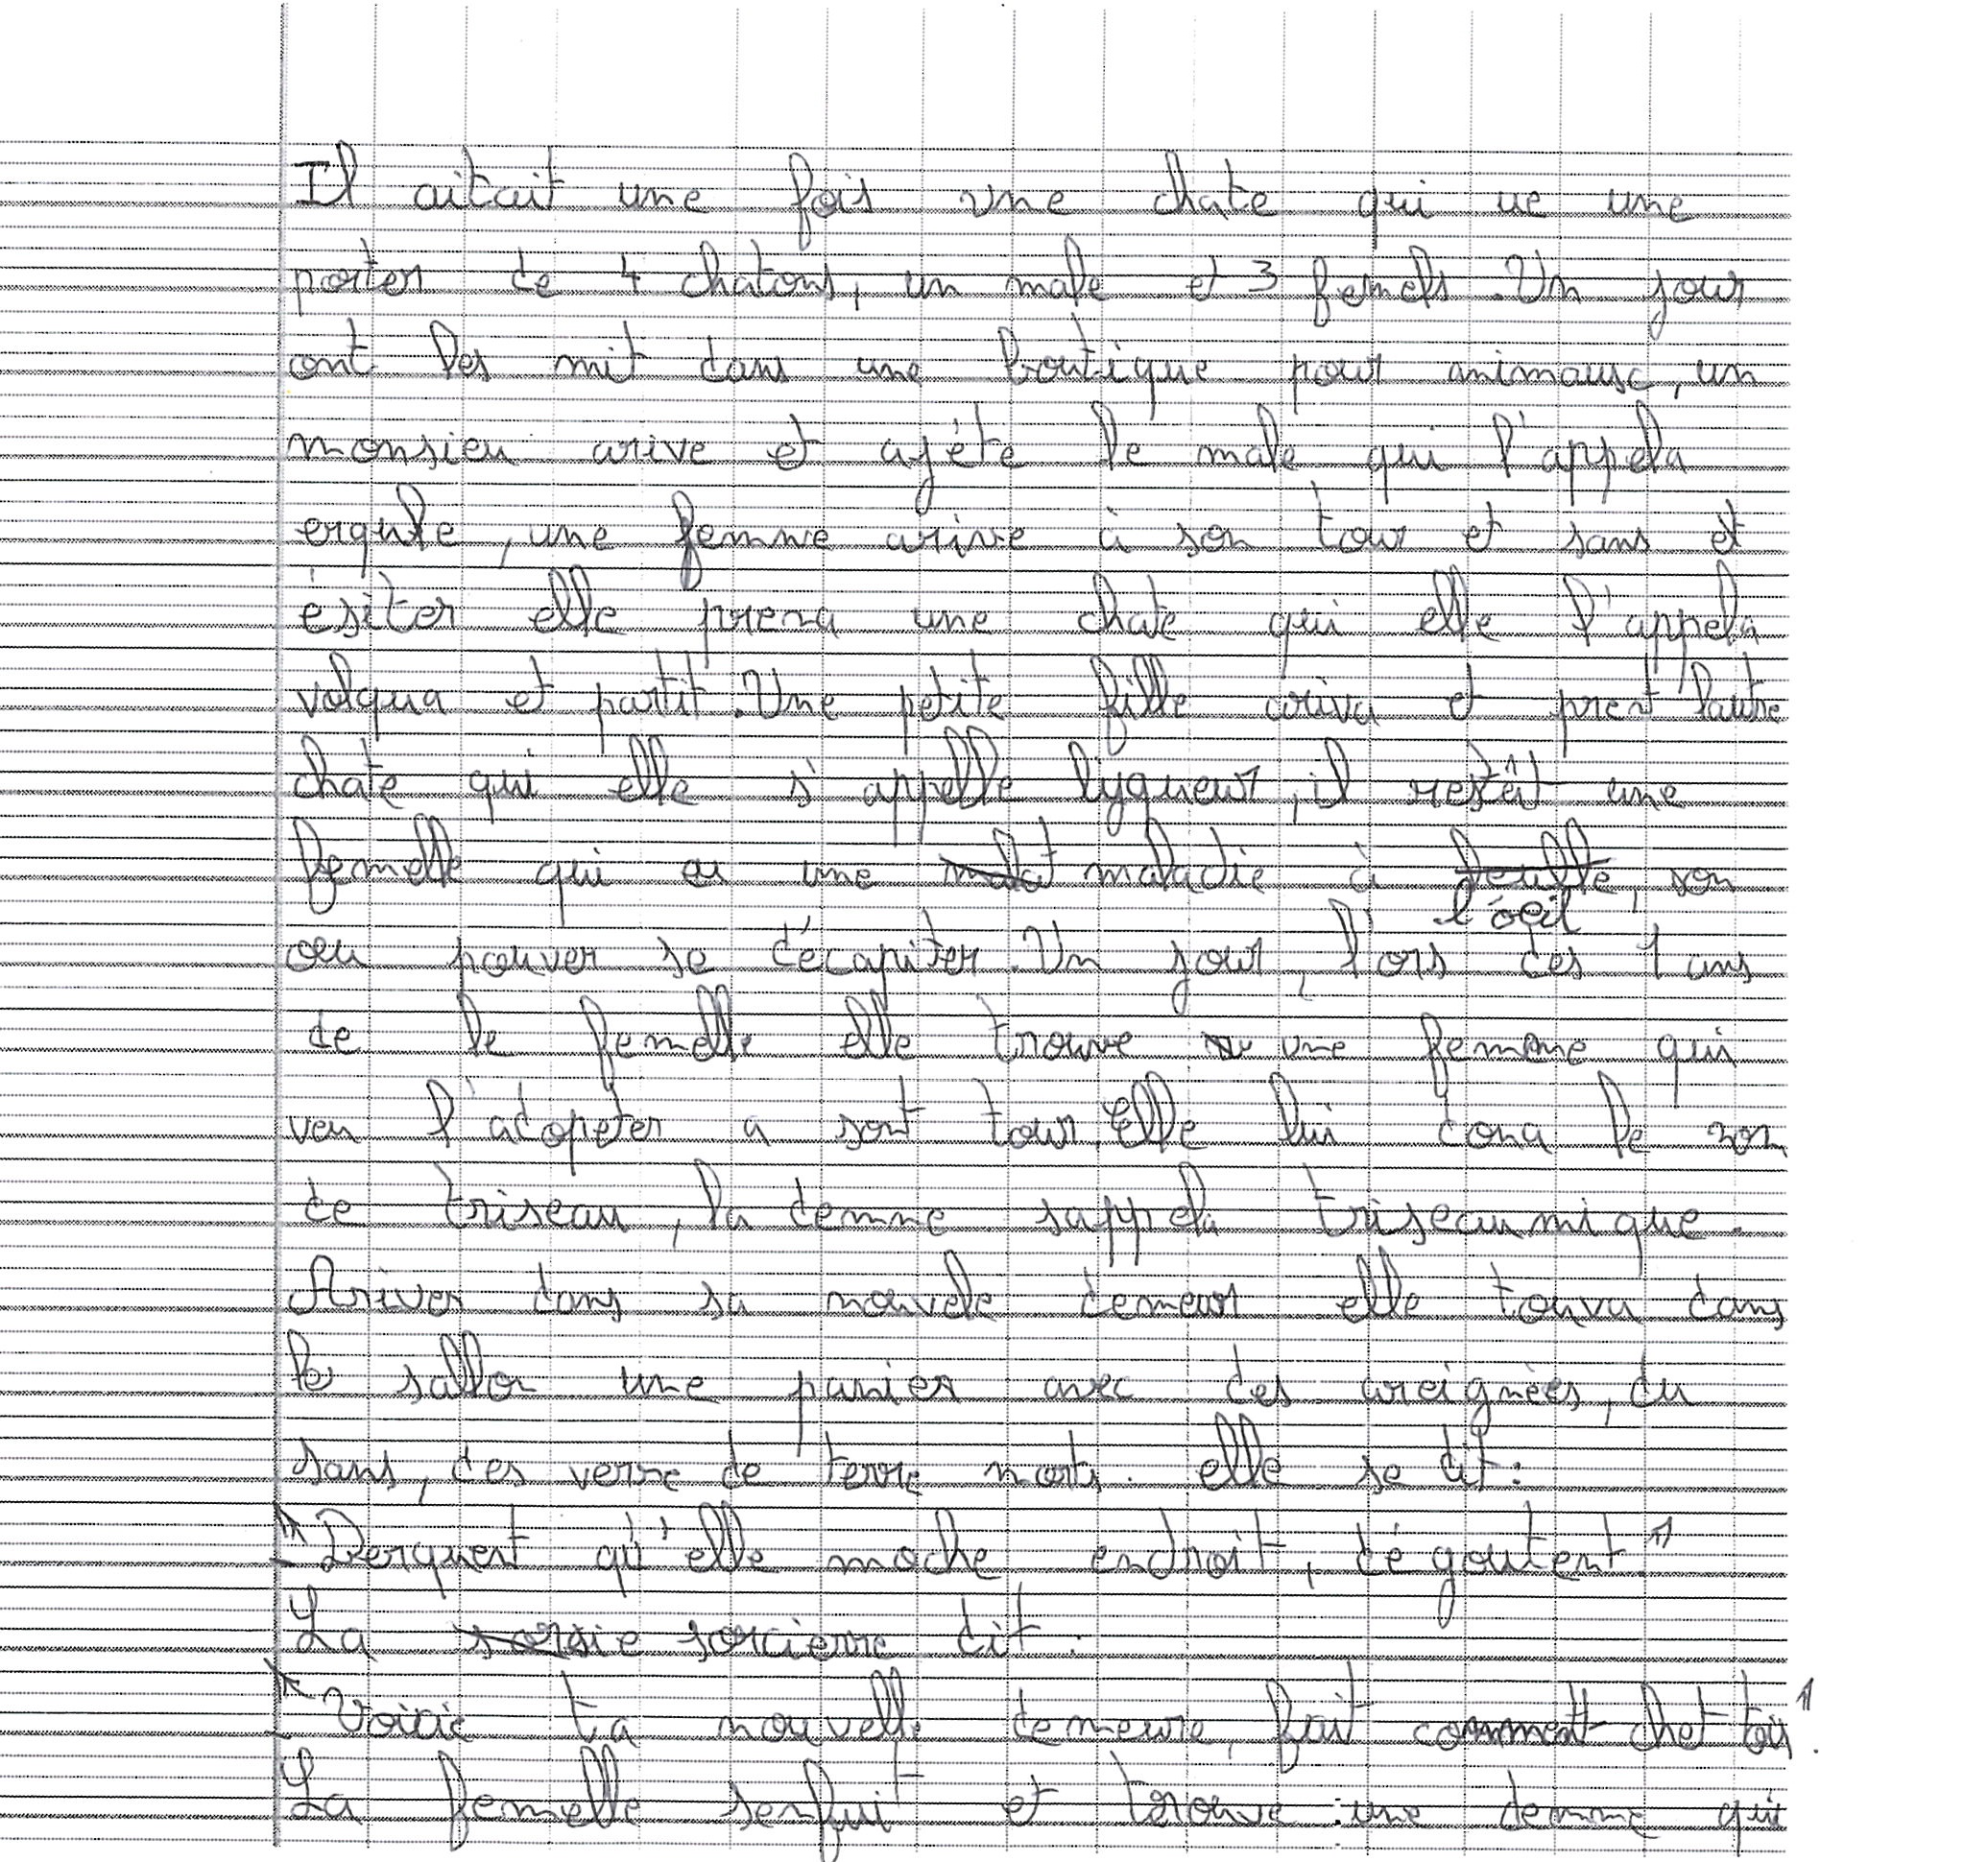 Il aitait une fois une chate qui ue une
porter de 4 chatons, un male et 3 femels. Un jour
ont les mit dans une boutique pour animaux, un
monsieu arive et ajète le male qui l'appela
erqule, une femme arive à son tour et sans et
ésiter elle prena une chate qui elle l'appela
volqua et partit. Une petite fille ariva et prent l'autre
chate qui elle s'appelle lyqueur, il restàit une
femelle qui eu une maladie à l'oeil, son
oeu pouver se décapiter. Un jour, l'ors des 1 ans
de le femelle elle trouve une femme qui
veu l'adopeter a sont tour. Elle lui dona le non
de triseau, la demme sappela triseaumique.
Ariver dans sa nouvele demeur elle touva dans
le sallon une panier avec des areignées, du
sans, des verre de terre morts. elle se dit:
"Berquent qu'elle moche endroit, dégoutent."
La sorcierre dit:
"Voicie ta nouvelle demeure, fait comment chet toi".
La femelle senfuit et trouve une demme qui